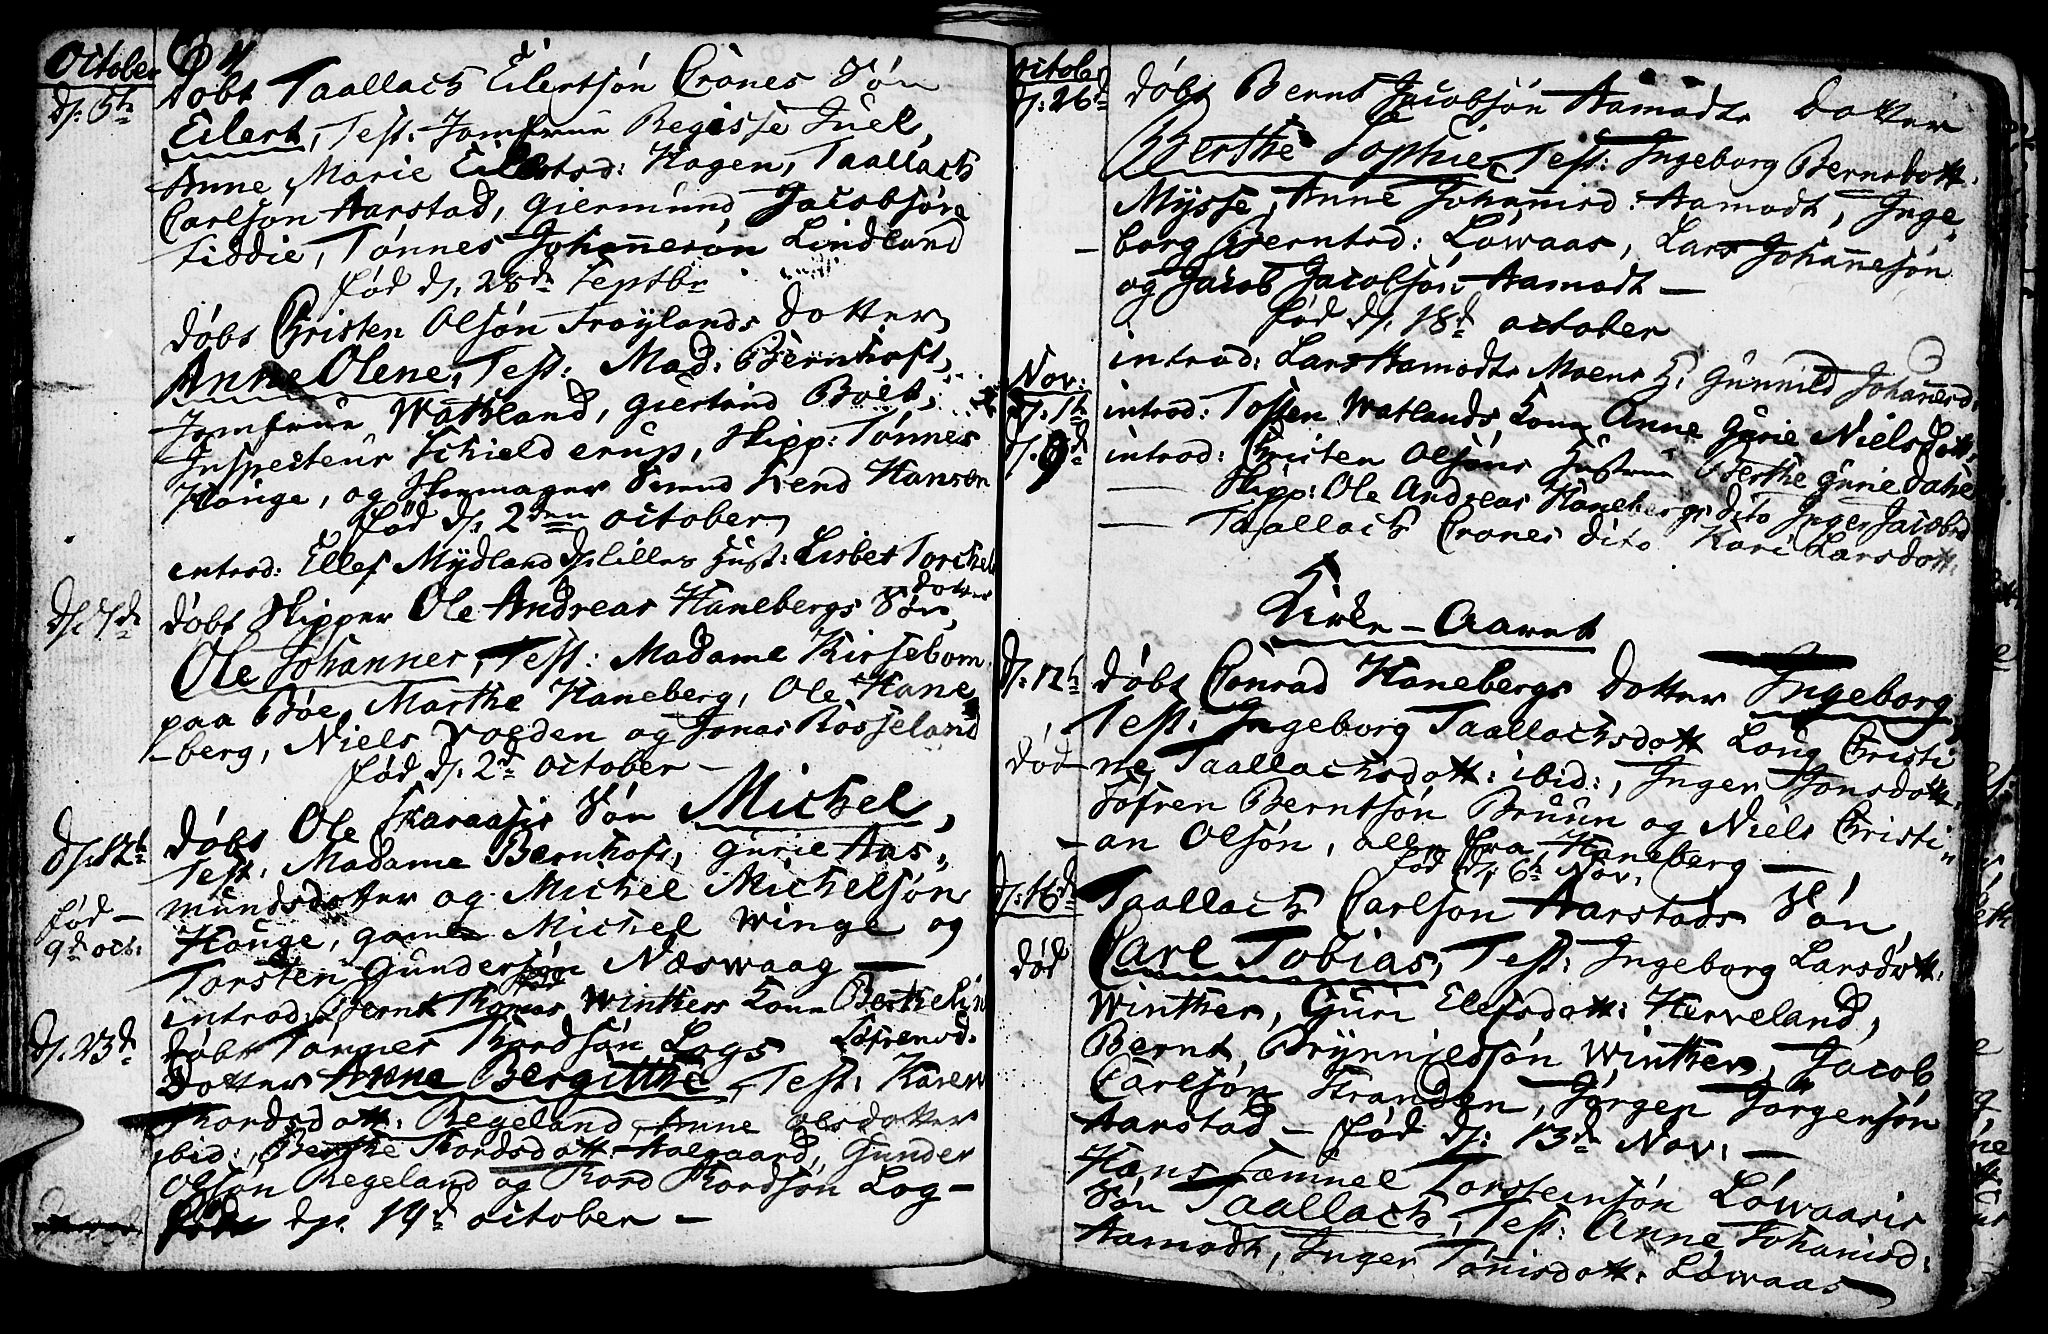 October
d. 5te
døbt Taallach Eilertsøn Crones Søn
Eilert, Test: Jomfrue Regisse Juel,
Anne Marie Eilertsd: Hagen, Taallach
Carlsøn Aarstad, Giermund Jacobsøn
Siddie, Tønnes Johannesøn Lindland
fød d. 28de Septbr
døbt Christen Olsøn Frøylands Dotter
Anne Olene, Test: Mad: Bernhoft,
Jomfrue Watland, Giertrud Boet,
Inspecteur Schielderup, Skipp: Tønnes
Hauge, og Svend Hansen
fød d. 2den October
introd: Ellef Mydland d. Lilles Hust: Lisbet Torchels
dotter
d. 7de
døbt Skipper Ole Andreas Hanebergs Søn
Ole Johannes, Test: Madame Kirsebom
paa Bøe, Marthe Haneberg, Ole Hane
-berg, Niels Voeden og Jonas Rosseland
fød d. 2de October -
d. 12te
døbt Ole Skaraasis Søn Michel,
Test: Madame Bernhoft, Gurie Aas-
mundsdotter og Michel Michelsøn
fød -
9de oct:
Hauge, gamle Michel Winge og
Torsten Gundersøn Næswaag -
introd: Bernt Thomas Winthers Kone Berthe
Sofrensd.
d. 23de
døbt Tønnes Thordsøn Logs
Dotter Anne Bergitthe, Test: Karen
Thordsdott: Regeland, Anne Olsdotter
ibid:, Berthe Thordsdott: Aalgaard, Gunder
Olsøn Regeland og Thord Thordsøn Log -
fød d. 19de October -
October
d. 26de
døbt Bernt Jacobsøn Aamodts Dotter
Berthe Sophie, Test: Ingeborg Berntsdott.
Mysse, Anne Johannisd: Aamodt, Inge
borg Berntsd: Løwaas, Lars Johannesøn
og Jacob Jacobsøn Aamodt -
fød d. 18de October
introd: Lars Aamodts Moens H. Gunnild Johannesd.
Nov:
d. 1te
introd: Tosten Watlands Kone Anne Gurie Nielsdott.
d. 9de
introd: Christen Olsøns Hustrue Berthe Gurie Dahle
- Skipp: Ole Andreas Hanebergs dito Inger Jacobsd
- Taallach Crones dito Kari Larsdott.
Kirke-Aaret
d. 12te
døbt Conrad Hanebergs Dotter Ingeborg,
Test: Ingeborg Taallachsdott Long Christi
død
ne Taallachsdott: ibid:, Inger Jonsdott.
Søfren Berntsøn Bruun og Niels Christi
-an Olsøn, alle fra Haneberg -
fød d. 6te Nov.
d. 16de
Taallach Carlsøn Aarstads Søn
død
Carl Tobias, Test: Ingeborg Larsdott:
Winther, Guri Elefsdott: Herveland,
Bernt Brynnildsøn Winther, Jacob
Carlsøn Stranden, Jørgen Jørgensøn
Aarstad - fød d. 13de Nov: -
Hans Samuel Torsteinsøn Løwaasis
Søn Taallach, Test: Anne Johanisd:
Aamodt, Inger Tønnisdott: Løwaas